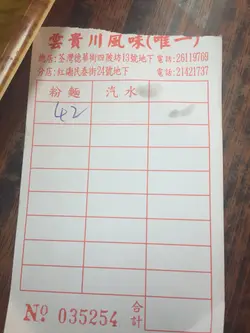 雲貴川風味(唯一)
總店:荃灣德華街四陂坊13號地下 電話:26119769
分店:紅磡民泰街24號地下 電話:21421737
粉麵 汽水
42
No 035254 合計